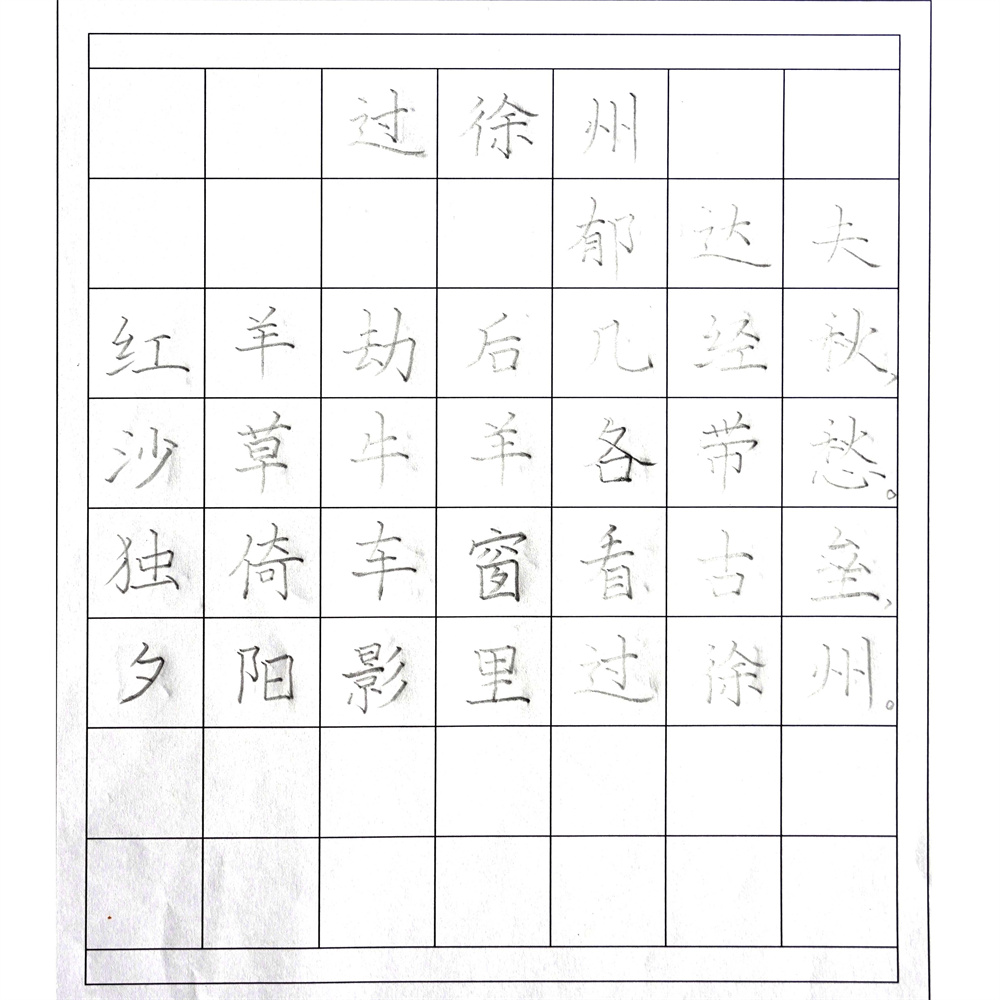 过徐州
郁达夫
红羊劫后几经秋，
沙草牛羊各带愁。
独倚车窗看古垒，
夕阳影里过涂州。